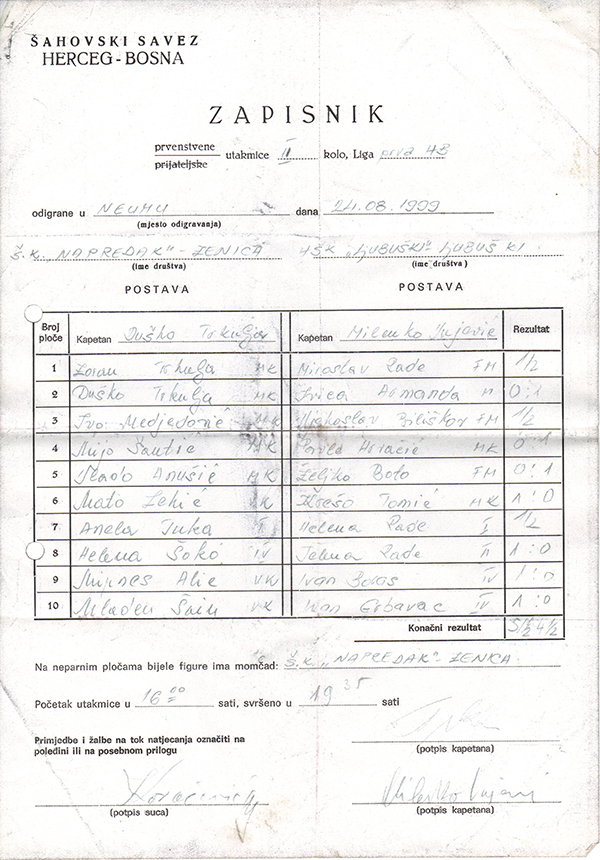 ŠAHOVSKI SAVEZ
HERCEG-BOSNA
ZAPISNIK
prvenstvene
prijateljske
utakmice II kolo, Liga prva 43
odigrane u NEUMU dana 24.08.1999
(mjesto odigravanja)
Š.K. "NAPREDAK"-ZENICA HŠK "LJUBUŠKI" LJUBUŠKI
(ime društva) (ime društva)
POSTAVA POSTAVA
Broj ploče Kapetan Duško Trkulja Kapetan Milenko Vujević Rezultat
1 Zoran Trkulja MK Miroslav Rade FM 1/2
2 Duško Trkulja MK Armanda M 0:1
3 Ivo Medjedović MK Biliškov FM 1/2
4 Mijo Šantić MK Pavle MK 0:1
5 Vlado Anušić MK Željko Boto FM 0:1
6 Mato Lekić MK Krešo Tomić MK 1:0
7 Anela Juka II Helena Rade I 1/2
8 Helena Šoko IV Jelena Rade II 1:0
9 Mirnes Alic VK Ivan Boras IV 1:0
10 Mladen VK Ivan Grbavac IV 1:0
Konačni rezultat 5 1/2 4 1/2
Na neparnim pločama bijele figure ima momčad: Š.K. "NAPREDAK"-ZENICA
Početak utakmice u 16 00 sati, svršeno u 19 35 sati
Primjedbe i žalbe na tok natjecanja označiti na
poleđini ili na posebnom prilogu
(potpis kapetana)
(potpis suca) (potpis kapetana)